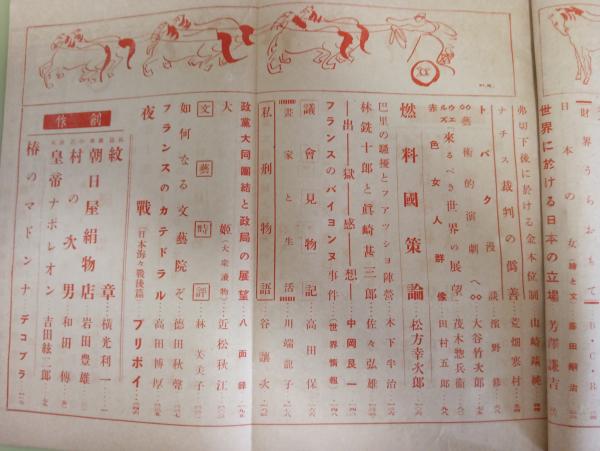 財界うらおもて B・C・R
日本の女(繪と文) 藤田嗣治
世界に於ける日本の立場 芳澤謙吉
弗切下後に於ける金本位制 山崎靖純
ナチス裁判の僞善 荒畑寒村
トバク漫談 濱野修
◇◇藝術的演劇へ◇◇ 大谷竹次郎
ウェルズ「來るべき世界の展望」 茂木惣兵衞
赤色女人群像 田村五郎
燃料國策論 松方幸次郎
巴里の騷擾とファアツショ陣營 木下半治
林銑十郎と眞崎甚三郎 佐々弘雄
――出――獄――感――想―― 中岡艮一
フランスのバイヨンヌ事件(世界情報)
議會見物記 高田保
畫家と生活 川端龍子
私刑物語 谷讓次
政黨大同團結と政局の展望 八面鋒
大姬(大衆讀物) 近松秋江
文藝時評 林芙美子
如何なる文藝院ぞ 德田秋聲
フランスのカテドラル 高田博厚
夜戰(日本海々戰後篇) プリボイ
創作
紋章 橫光利一
朝日屋絹物店 岩田豊雄
村の次男 和田傳
皇帝ナポレオン 吉田絃二郎
椿のマドンナ デコブラ